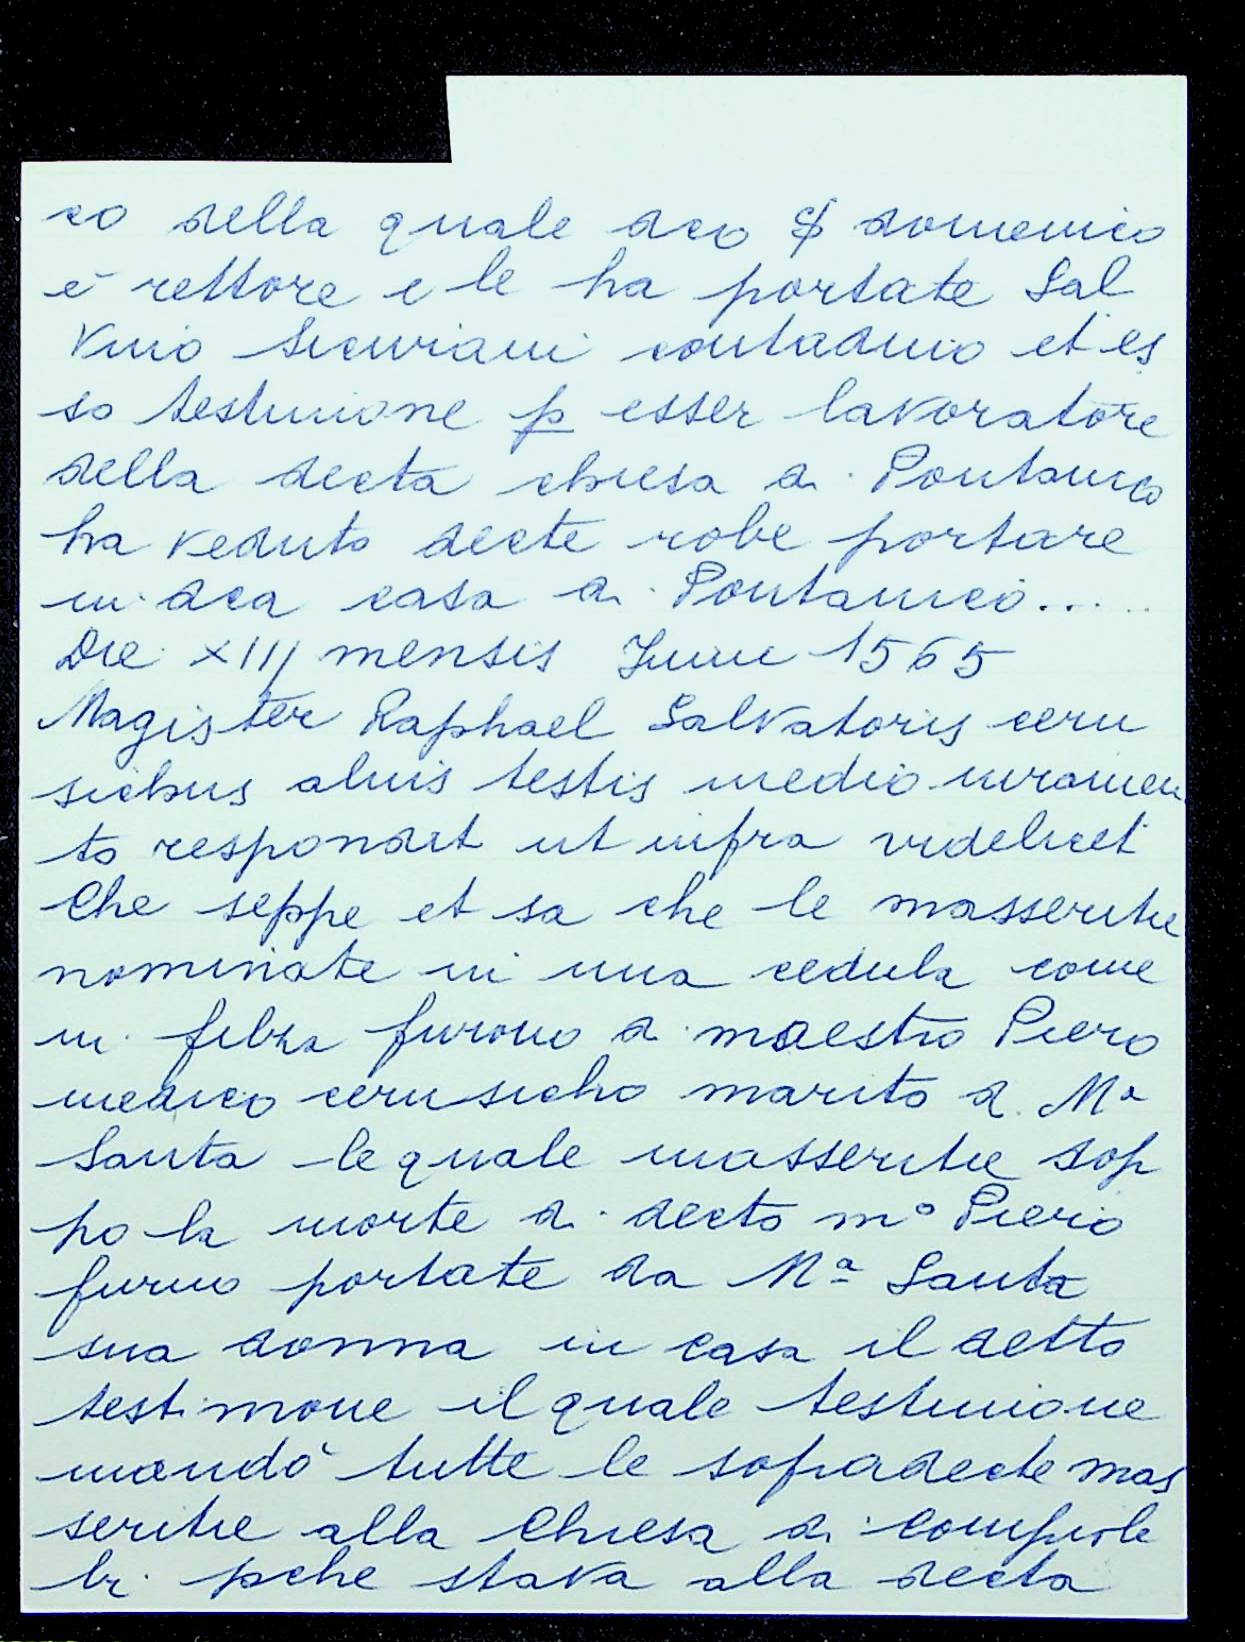 co della quale dco $ domenico
è rettore e le ha portate Sal
vino Sicuriani contadino et es
so testimone p esser lavoratore
della decta chiesa di Pontanico
ha veduto decte robe portare
in dca casa di Pontanico.....
Die XIIJ mensis Junii 1565
Magister Raphael Salvatoris ceru
sichus alius testis medio iuramen
to respondit ut infra videlicet
Che seppe et sa che le masseritie
nominate in una cedula come
in filza furono di maestro Piero
medico cerusicho marito di Mª
Santa le quale masseritie dop
po la morte di decto mº Piero
furno portate da Mª Santa
sua donna in casa il detto
testimone il quale testimone
mandò tutte le sopradecte mas
seritie alla Chiesa di
li pche stava alla decta